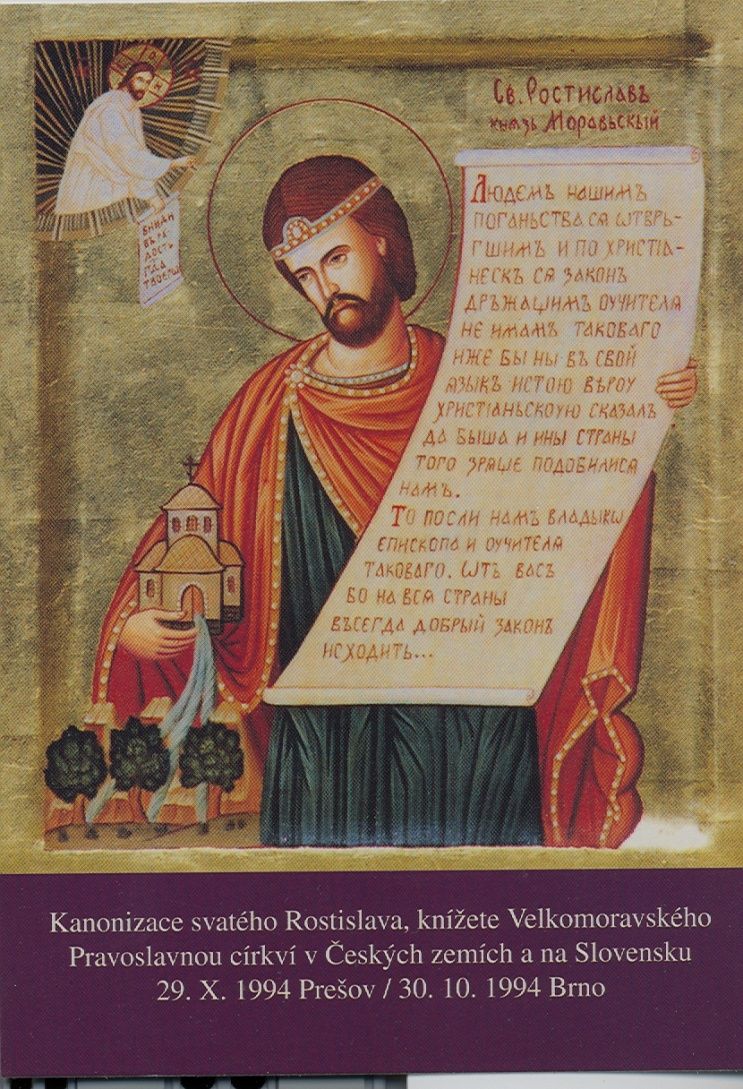 Св. Ростиславъ
князь Моравьскый
ВНИДИ
ВЪ РА-
ДОСТЬ
ГПДА
ТВОЕГО
Людемъ нашимъ
поганьства ся ѡтврь-
гшимъ и по христіа-
нескъ ся законъ
дръжащимъ оучителя
не имамъ таковаго
иже бы ны въ свой
языкъ истою вѣроу
христіаньскоую сказалъ
да быша и ины страны
того зряще подобилися
намъ.
То посли намъ владыкѡ
епископа и оучителя
таковаго. ѡтъ васъ
бо на вся страны
въсегда добрый законъ
исходить...
Kanonizace svatého Rostislava, knížete Velkomoravského
Pravoslavnou církví v Českých zemích a na Slovensku
29. X. 1994 Prešov / 30. 10. 1994 Brno